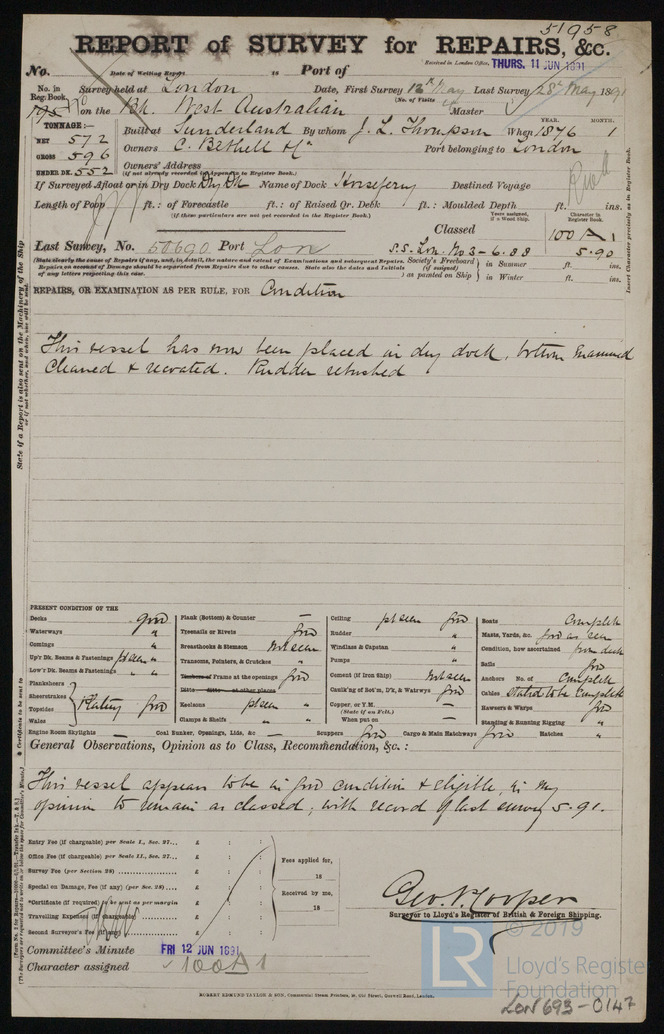 51958
REPORT of SURVEY for REPAIRS, &c.
Received in London Office, THURS. 11 JUN 1891
No. Date of Writing Report is Port of
No. in Reg. Book. Survey held at London Date, First Survey 12th May Last Survey 28th May 1891
(No. of Visits
on the Bk. West Australian Master
TONNAGE:— Built at Sunderland By whom J. L. Thompson When 1876 1
YEAR. MONTH.
NET 572
GROSS 596
UNDER DK. 552
Owners C. Bethell & Co Port belonging to London
Owners' Address
(if not already recorded in Appendix to Register Book.)
If Surveyed Afloat or in Dry Dock Dry Dk Name of Dock Horseferry Destined Voyage
Length of Poop ft.: of Forecastle ft.: of Raised Qr. Deck ft.: Moulded Depth ft. ins.
(if these particulars are not yet recorded in the Register Book.)
Years assigned, if a Wood Ship. Character in Register Book.
Classed 100 A 1
Last Survey, No. 50690 Port Lon S.S. Lon. No 3 - 6.88 5.90
(State clearly the cause of Repairs if any, and, in detail, the nature and extent of Examinations and subsequent Repairs.
Repairs on account of Damage should be separated from Repairs due to other causes. State also the dates and Initials
of any letters respecting this case.)
Society's Freeboard (if assigned) as painted on Ship in Summer ft. ins.
in Winter ft. ins.
Insert Character precisely as in Register Book.
REPAIRS, OR EXAMINATION AS PER RULE, FOR Condition
This vessel has now been placed in dry dock, bottom examined
cleaned & recoated. Rudder rebushed
State if a Report is also sent on the Machinery of the Ship
PRESENT CONDITION OF THE
Decks good
Waterways "
Comings "
Up'r Dk. Beams & Fastenings pt seen "
Low'r Dk. Beams & Fastenings " "
Planksheers
Sheerstrakes
Topsides
Wales
Plating good
Engine Room Skylights —
Plank (Bottom) & Counter —
Treenails or Rivets good
Breasthooks & Stemson Not seen
Transoms, Pointers, & Crutches "
Timbers or Frame at the openings good
Ditto ditto at other places
Keelsons pt seen "
Clamps & Shelfs " "
Coal Bunker, Openings, Lids, &c —
Ceiling pt seen good
Rudder "
Windlass & Capstan "
Pumps "
Cement (if Iron Ship) Not seen
Caulk'ng of Bot'm, D'k, & Watrwys good
Copper, or Y.M. —
(State if on Felt.)
When put on —
Scuppers good
Boats Complete
Masts, Yards, &c. good as seen
Condition, how ascertained from deck
Sails good
Anchors No. of Complete
Cables Stated to be Complete
Hawsers & Warps good
Standing & Running Rigging "
Cargo & Main Hatchways good Hatches "
General Observations, Opinion as to Class, Recommendation, &c.:
This vessel appears to be in good condition & eligible, in my
opinion to remain as classed, with record of last survey 5.91.
Entry Fee (if chargeable) per Scale I., Sec. 27... £ : :
Office Fee (if chargeable) per Scale II., Sec. 27... £ : :
Survey Fee (per Section 28) £ : :
Special on Damage, Fee (if any) (per Sec. 28) £ : :
*Certificate (if required) to be sent as per margin £ : :
Travelling Expenses (if chargeable) £ : :
Second Surveyor's Fee (if any) £ : :
Fees applied for,
18
Received by me,
18
Geo. V. Cooper
Surveyor to Lloyd's Register of British & Foreign Shipping.
Committee's Minute FRI 12 JUN 1891
Character assigned 100 A 1
ROBERT EDMUND TAYLOR & SON, Commercial Steam Printers, 19, Old Street, Goswell Road, London.
© 2019
LR
Lloyd's Register
Foundation
LON 693-0147